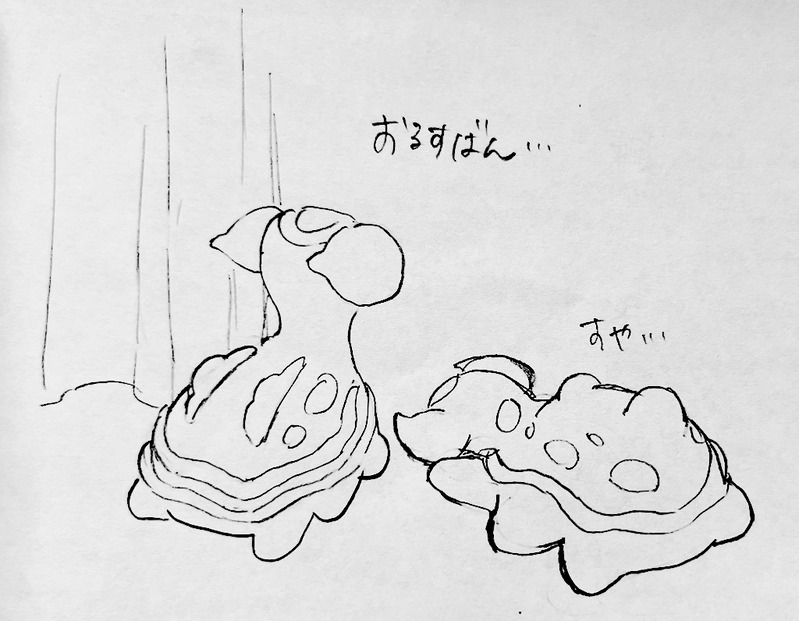 おるすばん…
すや…